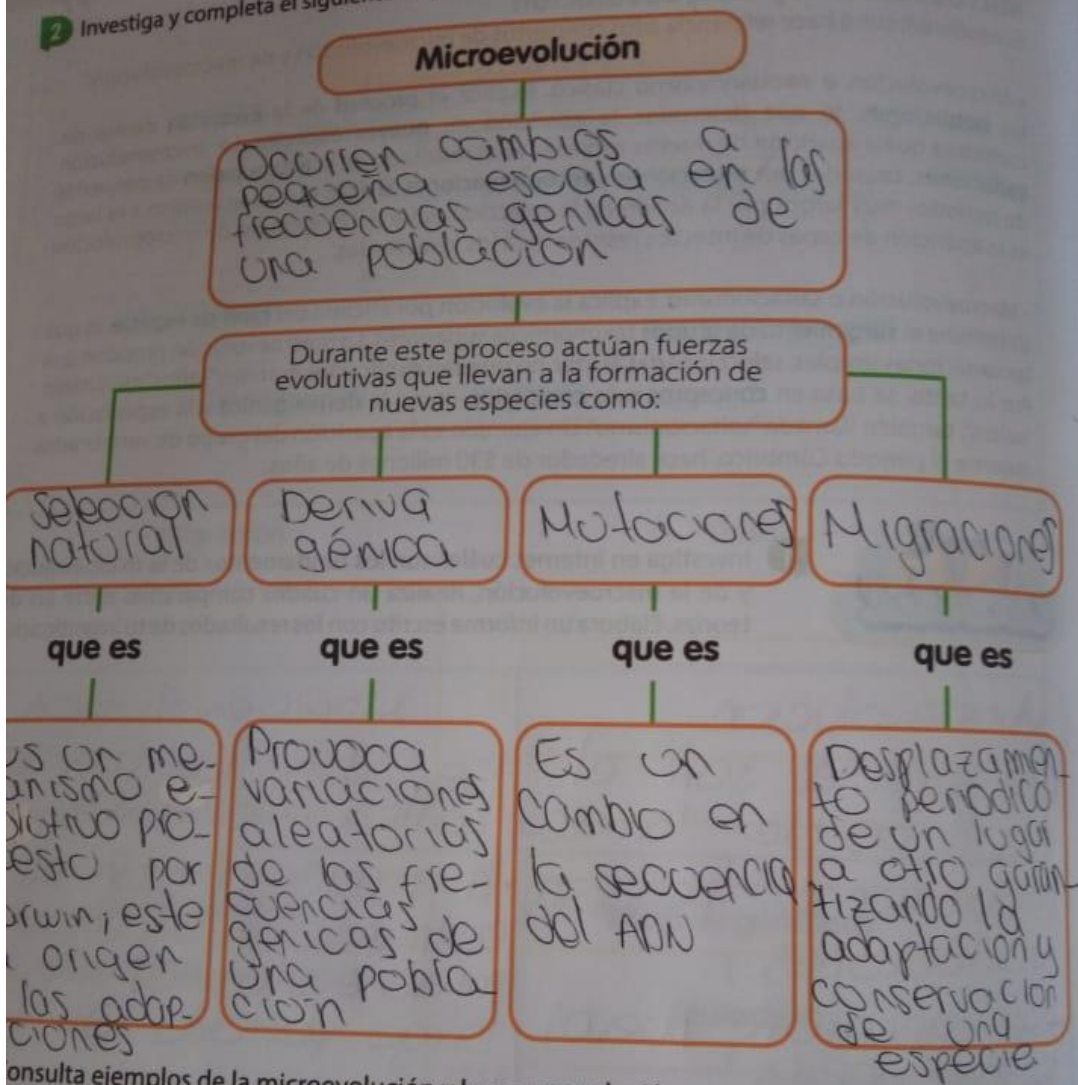 2 Investiga y completa el
Microevolución
Ocurren cambios a
pequeña escala en las
frecuencias génicas de
una población
Durante este proceso actúan fuerzas
evolutivas que llevan a la formación de
nuevas especies como:
Selección
natural
Deriva
génica
Mutaciones
Migraciones
que es
que es
que es
que es
us un me-
anismo e-
olutivo pro-
esto por
arwin; este
origen
las adap-
ciones
Provoca
variaciones
aleatorias
de las fre-
cuencias
génicas de
una pobla-
ción
Es un
cambio en
la secuencia
del ADN
Desplazamien-
to periódico
de un lugar
a otro garan-
tizando la
adaptación y
conservación
de una
especie
onsulta ejemplos de la microevolución